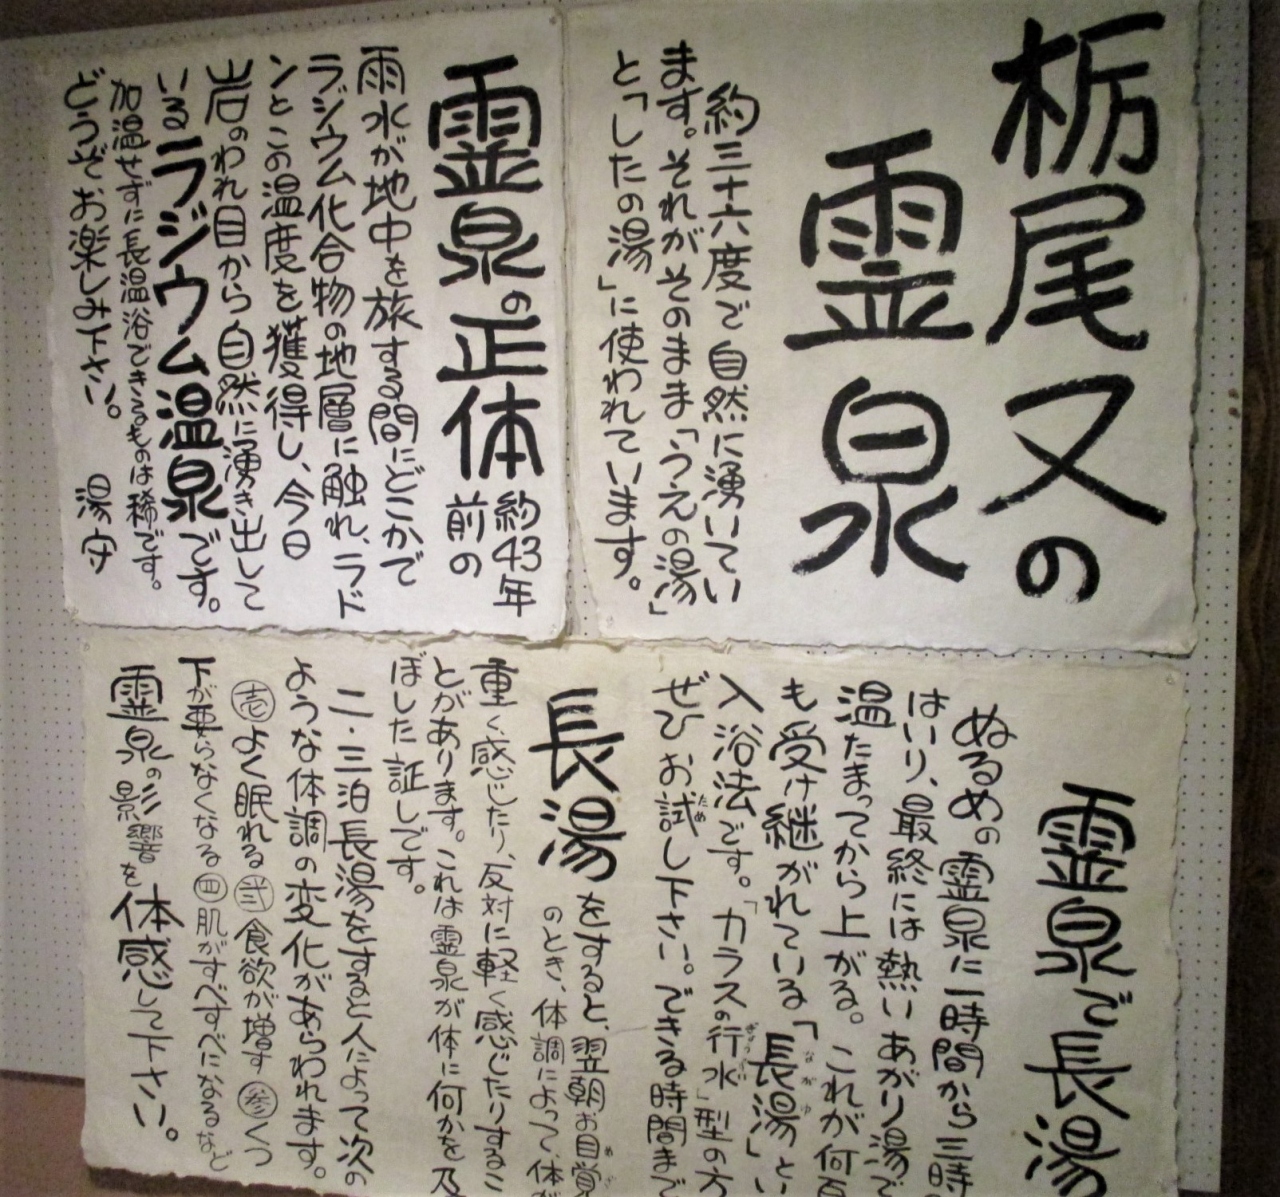 栃尾又の
霊泉
約三十六度で自然に湧いてい
ます。それがそのまま「うえの湯」
と「したの湯」に使われています。
霊泉の正体
約43年
前の
雨水が地中を旅する間にどこかで
ラジウム化合物の地層に触れ、ラド
ンとこの温度を獲得し、今日
岩のわれ目から自然に湧き出して
いるラジウム温泉です。
加温せずに長温浴できるものは稀です。
どうぞお楽しみ下さい。 湯守
霊泉で長湯
ぬるめの霊泉に一時間から三時
はいり、最終には熱いあがり湯で
温たまってから上がる。これが何百
も受け継がれている「長湯」とい
ながゆ
入浴法です。「カラスの行水」型の方
ぎょうずい
ぜひお試し下さい。できる時間まで
ため
長湯をすると、翌朝お目覚
めざ
のとき、体調によって、体が
重く感じたり、反対に軽く感じたりするこ
とがあります。これは霊泉が体に何かを及
ぼした証しです。
二・三泊長湯をすると人によって次の
ような体調の変化があらわれます。
壱よく眠れる 弐食欲が増す 参くつ
下が要らなくなる 四肌がすべすべになるなど
霊泉の影響を体感して下さい。